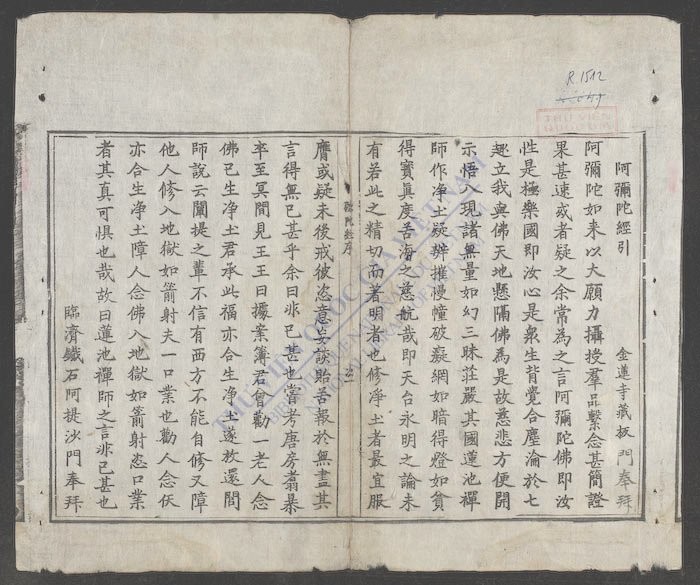 R.1512
THƯ VIỆN
阿彌陀經引 金蓮寺藏板 門奉拜
阿彌陀如來以大願力攝授羣品繫念甚簡證
果甚速或者疑之余常為之言阿彌陀佛即汝
性是極樂國即汝心是衆生背覺合塵淪於七
趣立我與佛天地懸隔佛為是故慈悲方便開
示悟入現諸無量如幻三昧莊嚴其國蓮池禪
師作净土疑辨摧慢幢破癡網如暗得燈如貧
得寶眞度苦海之慈航哉即天台永明之論未
有若此之精切而著明者也修淨土者最宜服
彌陀經序
膺或疑末後戒彼恣意妄談貽苦報於無盡其
言得無已甚乎余曰非已甚也嘗考唐房翥暴
卒至冥間見王王曰據案簿君曾勸一老人念
佛已生净土君承此福亦合生净土遂放還閻
師說云闡提之輩不信有西方不能自修又障
他人修入地獄如箭射夫一口業也勸人念仸
亦合生净土障人念佛入地獄如箭射恣口業
者其真可惧也哉故曰蓮池禪師之言非已甚也
臨濟鐵石阿提沙門奉拜
THƯ VIỆN QUỐC GIA VIỆT NAM